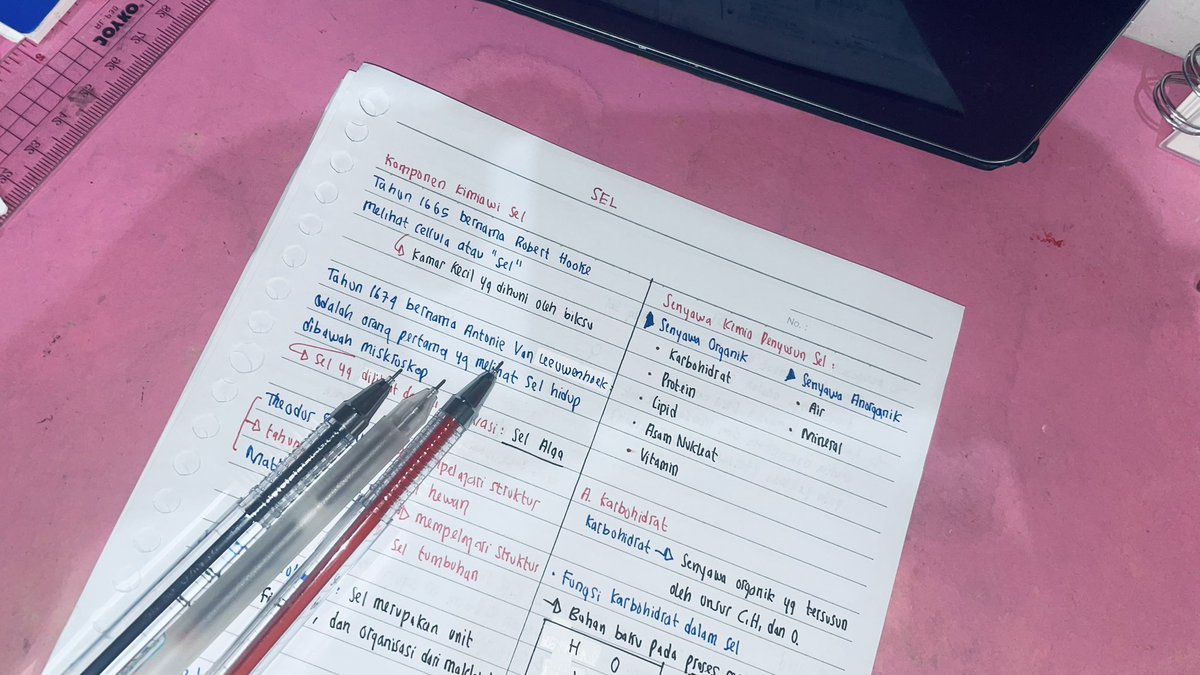 JOYKO
SEL
Komponen Kimiawi Sel
Tahun 1665 bernama Robert Hooke
melihat cellula atau "sel"
Kamar kecil yg dihuni oleh biksu
Tahun 1674 bernama Antonie Van Leeuwenhoek
adalah orang pertama yg melihat sel hidup
dibawah miskroskop
Sel yg : Sel Alga
Theodor
tahun struktur
hewan
mempelajari struktur
sel tumbuhan
: sel merupakan unit
, dan organisasi dari
No.:
Senyawa Kimia Penyusun Sel :
Senyawa Organik
• Karbohidrat
• Protein
• Lipid
• Asam Nukleat
• Vitamin
Senyawa Anorganik
• Air
• Mineral
A. Karbohidrat
Karbohidrat → Senyawa organik yg tersusun
oleh unsur C, H, dan O.
• Fungsi karbohidrat dalam sel
→ Bahan baku pada proses
H O